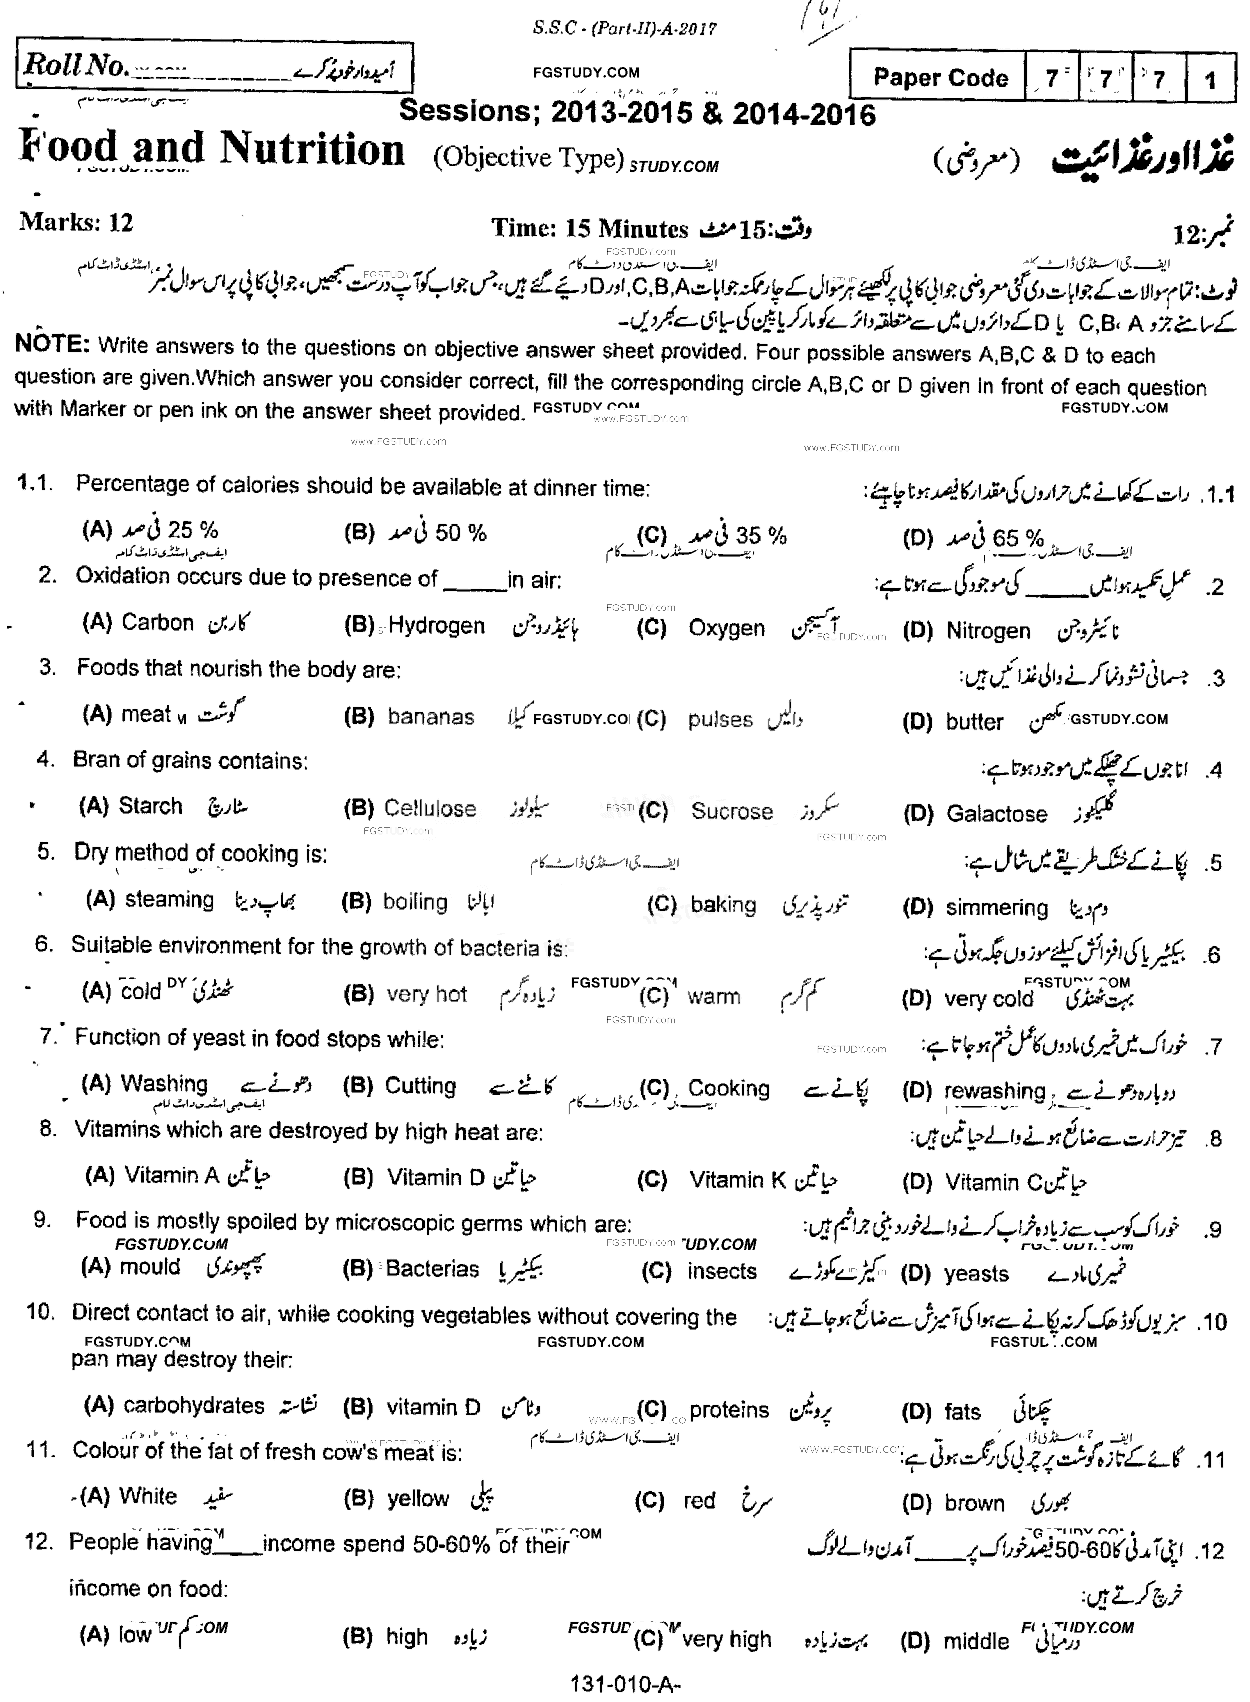 S.S.C - (Part-II)-A-2017
Roll No. امیدوار خود پُر کرے
FGSTUDY.COM
Paper Code 7 7 7 1
Sessions; 2013-2015 & 2014-2016
Food and Nutrition (Objective Type) STUDY.COM (معروضی) غذا اور غذائیت
Marks: 12 Time: 15 Minutes وقت: 15 منٹ نمبر: 12
نوٹ: تمام سوالات کے جوابات دی گئی معروضی جوابی کاپی پر لکھیئے ہر سوال کے چار ممکنہ جوابات C,B,A اور D دیئے گئے ہیں، جس جواب کو آپ درست سمجھیں، جوابی کاپی پر اس سوال نمبر
کے سامنے جزو C,B، A یا D کے دائروں میں سے متعلقہ دائرے کو مارکر یا پین کی سیاہی سے بھر دیں۔
NOTE: Write answers to the questions on objective answer sheet provided. Four possible answers A,B,C & D to each
question are given.Which answer you consider correct, fill the corresponding circle A,B,C or D given in front of each question
with Marker or pen ink on the answer sheet provided. FGSTUDY.COM FGSTUDY.COM
www.FGSTUDY.com www.FGSTUDY.com
1.1. Percentage of calories should be available at dinner time: 1.1. رات کے کھانے میں حراروں کی مقدار کا فیصد ہونا چاہیئے:
(A) 25 % فی صد (B) 50 % فی صد (C) 35 % فی صد (D) 65 % فی صد
2. Oxidation occurs due to presence of _____in air: 2. عمل تکسید ہوا میں _____ کی موجودگی سے ہوتا ہے:
(A) Carbon کاربن (B) Hydrogen ہائیڈروجن (C) Oxygen آکسیجن (D) Nitrogen نائیٹروجن
3. Foods that nourish the body are: 3. جسمانی نشوونما کرنے والی غذائیں ہیں:
(A) meat گوشت (B) bananas کیلا (C) pulses دالیں (D) butter مکھن
4. Bran of grains contains: 4. اناجوں کے چھلکے میں موجود ہوتا ہے:
(A) Starch سٹارچ (B) Cellulose سیلولوز (C) Sucrose سکروز (D) Galactose گلیکٹوز
5. Dry method of cooking is: 5. پکانے کے خشک طریقے میں شامل ہے:
(A) steaming بھاپ دینا (B) boiling ابالنا (C) baking تنور پذیری (D) simmering دم دینا
6. Suitable environment for the growth of bacteria is: 6. بیکٹیریا کی افزائش کیلئے موزوں جگہ ہوتی ہے:
(A) cold ٹھنڈی (B) very hot زیادہ گرم (C) warm کم گرم (D) very cold بہت ٹھنڈی
7. Function of yeast in food stops while: 7. خوراک میں خمیری مادوں کا عمل ختم ہو جاتا ہے:
(A) Washing دھونے سے (B) Cutting کاٹنے سے (C) Cooking پکانے سے (D) rewashing دوبارہ دھونے سے
8. Vitamins which are destroyed by high heat are: 8. تیز حرارت سے ضائع ہونے والے حیاتین ہیں:
(A) Vitamin A حیاتین (B) Vitamin D حیاتین (C) Vitamin K حیاتین (D) Vitamin C حیاتین
9. Food is mostly spoiled by microscopic germs which are: 9. خوراک کو سب سے زیادہ خراب کرنے والے خوردبینی جراثیم ہیں:
(A) mould پھپھوندی (B) Bacterias بیکٹیریا (C) insects کیڑے مکوڑے (D) yeasts خمیری مادے
10. Direct contact to air, while cooking vegetables without covering the 10. سبزیوں کو ڈھک کر نہ پکانے سے ہوا کی آمیزش سے ضائع ہو جاتے ہیں:
FGSTUDY.COM FGSTUDY.COM
pan may destroy their:
(A) carbohydrates نشاستہ (B) vitamin D وٹامن (C) proteins پروٹین (D) fats چکنائی
11. Colour of the fat of fresh cow's meat is: 11. گائے کے تازہ گوشت پر چربی کی رنگت ہوتی ہے:
(A) White سفید (B) yellow پیلی (C) red سرخ (D) brown بھوری
12. People having____income spend 50-60% of their 12. اپنی آمدنی کا 50-60 فیصد خوراک پر _____ آمدن والے لوگ
income on food: خرچ کرتے ہیں:
(A) low کم (B) high زیادہ (C) very high بہت زیادہ (D) middle درمیانی
131-010-A-